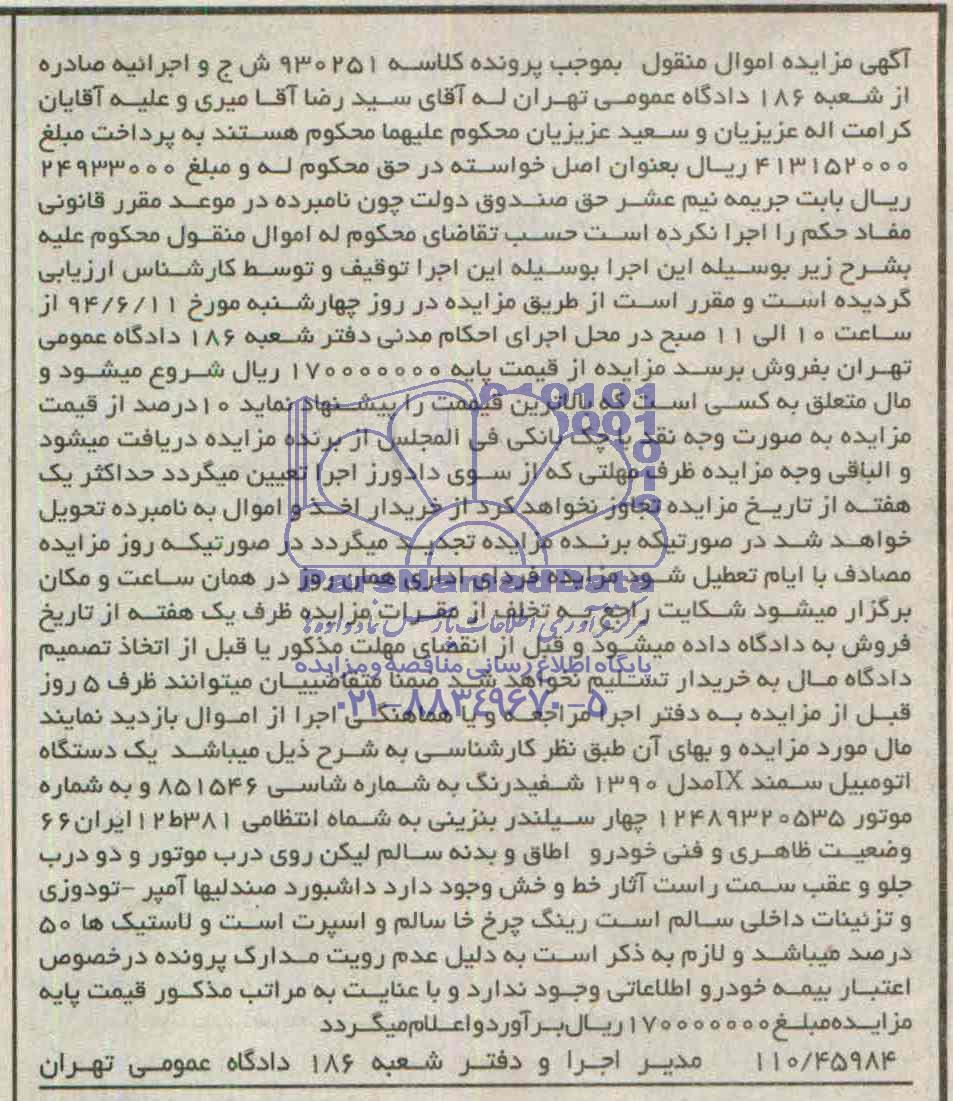 آگهی مزایده اموال منقول  بموجب پرونده کلاسه ۹۳۰۲۵۱ ش ج و اجرائیه صادره
از شعبه ۱۸۶ دادگاه عمومی تهران له آقای سید رضا آقا میری و علیه آقایان
کرامت اله عزیزیان و سعید عزیزیان محکوم علیهما محکوم هستند به پرداخت مبلغ
۴۱۳۱۵۲۰۰۰ ریال بعنوان اصل خواسته در حق محکوم له و مبلغ ۲۴۹۳۳۰۰۰
ریال بابت جریمه نیم عشر حق صندوق دولت چون نامبرده در موعد مقرر قانونی
مفاد حکم را اجرا نکرده است حسب تقاضای محکوم له اموال منقول محکوم علیه
بشرح زیر بوسیله این اجرا بوسیله این اجرا توقیف و توسط کارشناس ارزیابی
گردیده است و مقرر است از طریق مزایده در روز چهارشنبه مورخ ۹۴/۶/۱۱ از
ساعت ۱۰ الی ۱۱ صبح در محل اجرای احکام مدنی دفتر شعبه ۱۸۶ دادگاه عمومی
تهران بفروش برسد مزایده از قیمت پایه ۱۷۰۰۰۰۰۰۰ ریال شروع میشود و
مال متعلق به کسی است که بالاترین قیممت را پیشنهاد نماید ۱۰درصد از قیمت
مزایده به صورت وجه نقد یا چک بانکی فی المجلس از برنده مزایده دریافت میشود
و الباقی وجه مزایده ظرف مهلتی که از سوی دادورز اجرا تعیین میگردد حداکثر یک
هفته از تاریخ مزایده تجاوز نخواهد کرد از خریدار اخذ و اموال به نامبرده تحویل
خواهد شد در صورتیکه برنده مزایده تجدید میگردد در صورتیکه روز مزایده
مصادف با ایام تعطیل شود مزایده فردای اداری همان روز در همان ساعت و مکان
برگزار میشود شکایت راجع به تخلف از مقررات مزایده ظرف یک هفته از تاریخ
فروش به دادگاه داده میشود و قبل از انقضای مهلت مذکور یا قبل از اتخاذ تصمیم
دادگاه مال به خریدار تسلیم نخواهد شد ضمنا متقاضییان میتوانند ظرف ۵ روز
قبل از مزایده به دفتر اجرا مراجعه و یا هماهنگی اجرا از اموال بازدید نمایند
مال مورد مزایده و بهای آن طبق نظر کارشناسی به شرح ذیل میباشد  یک دستگاه
اتومبیل سمند IXمدل ۱۳۹۰ شفیدرنگ به شماره شاسی ۸۵۱۵۴۶ و به شماره
موتور ۱۲۴۸۹۳۲۰۵۳۵ چهار سیلندر بنزینی به شماه انتظامی ۳۸۱ط۱۲ایران۶۶
وضعیت ظاهری و فنی خودرو  اطاق و بدنه سالم لیکن روی درب موتور و دو درب
جلو و عقب سمت راست آثار خط و خش وجود دارد داشبورد صندلیها آمپر -تودوزی
و تزئینات داخلی سالم است رینگ چرخ خا سالم و اسپرت است و لاستیک ها ۵۰
درصد میباشد و لازم به ذکر است به دلیل عدم رویت مدارک پرونده درخصوص
اعتبار بیمه خودرو اطلاعاتی وجود ندارد و با عنایت به مراتب مذکور قیمت پایه
مزایده مبلغ ۱۷۰۰۰۰۰۰۰ ریال برآورد و اعلام میگردد
۱۱۰/۴۵۹۸۴  مدیر اجرا و دفتر شعبه ۱۸۶ دادگاه عمومی تهران
ParsNamadData
پایگاه اطلاع رسانی مناقصه و مزایده
۰۲۱-۸۸۳۴۹۶۷۰-۵